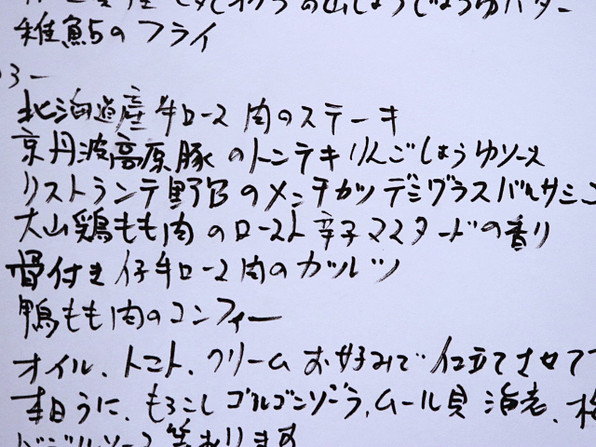 稚鮎のフライ
北海道産牛ロース肉のステーキ
京丹波高原豚のトンテキりんごしょうゆソース
リストランテ野呂のメンチカツ デミグラスバルサミコ
大山鶏もも肉のロースト 辛子マスタードの香り
骨付き仔牛ロース肉のカツレツ
鴨もも肉のコンフィー
オイル、トマト、クリーム お好みで 仕立てさせて
本日うに、もろこし ゴルゴンゾーラ、ムール貝 海老、